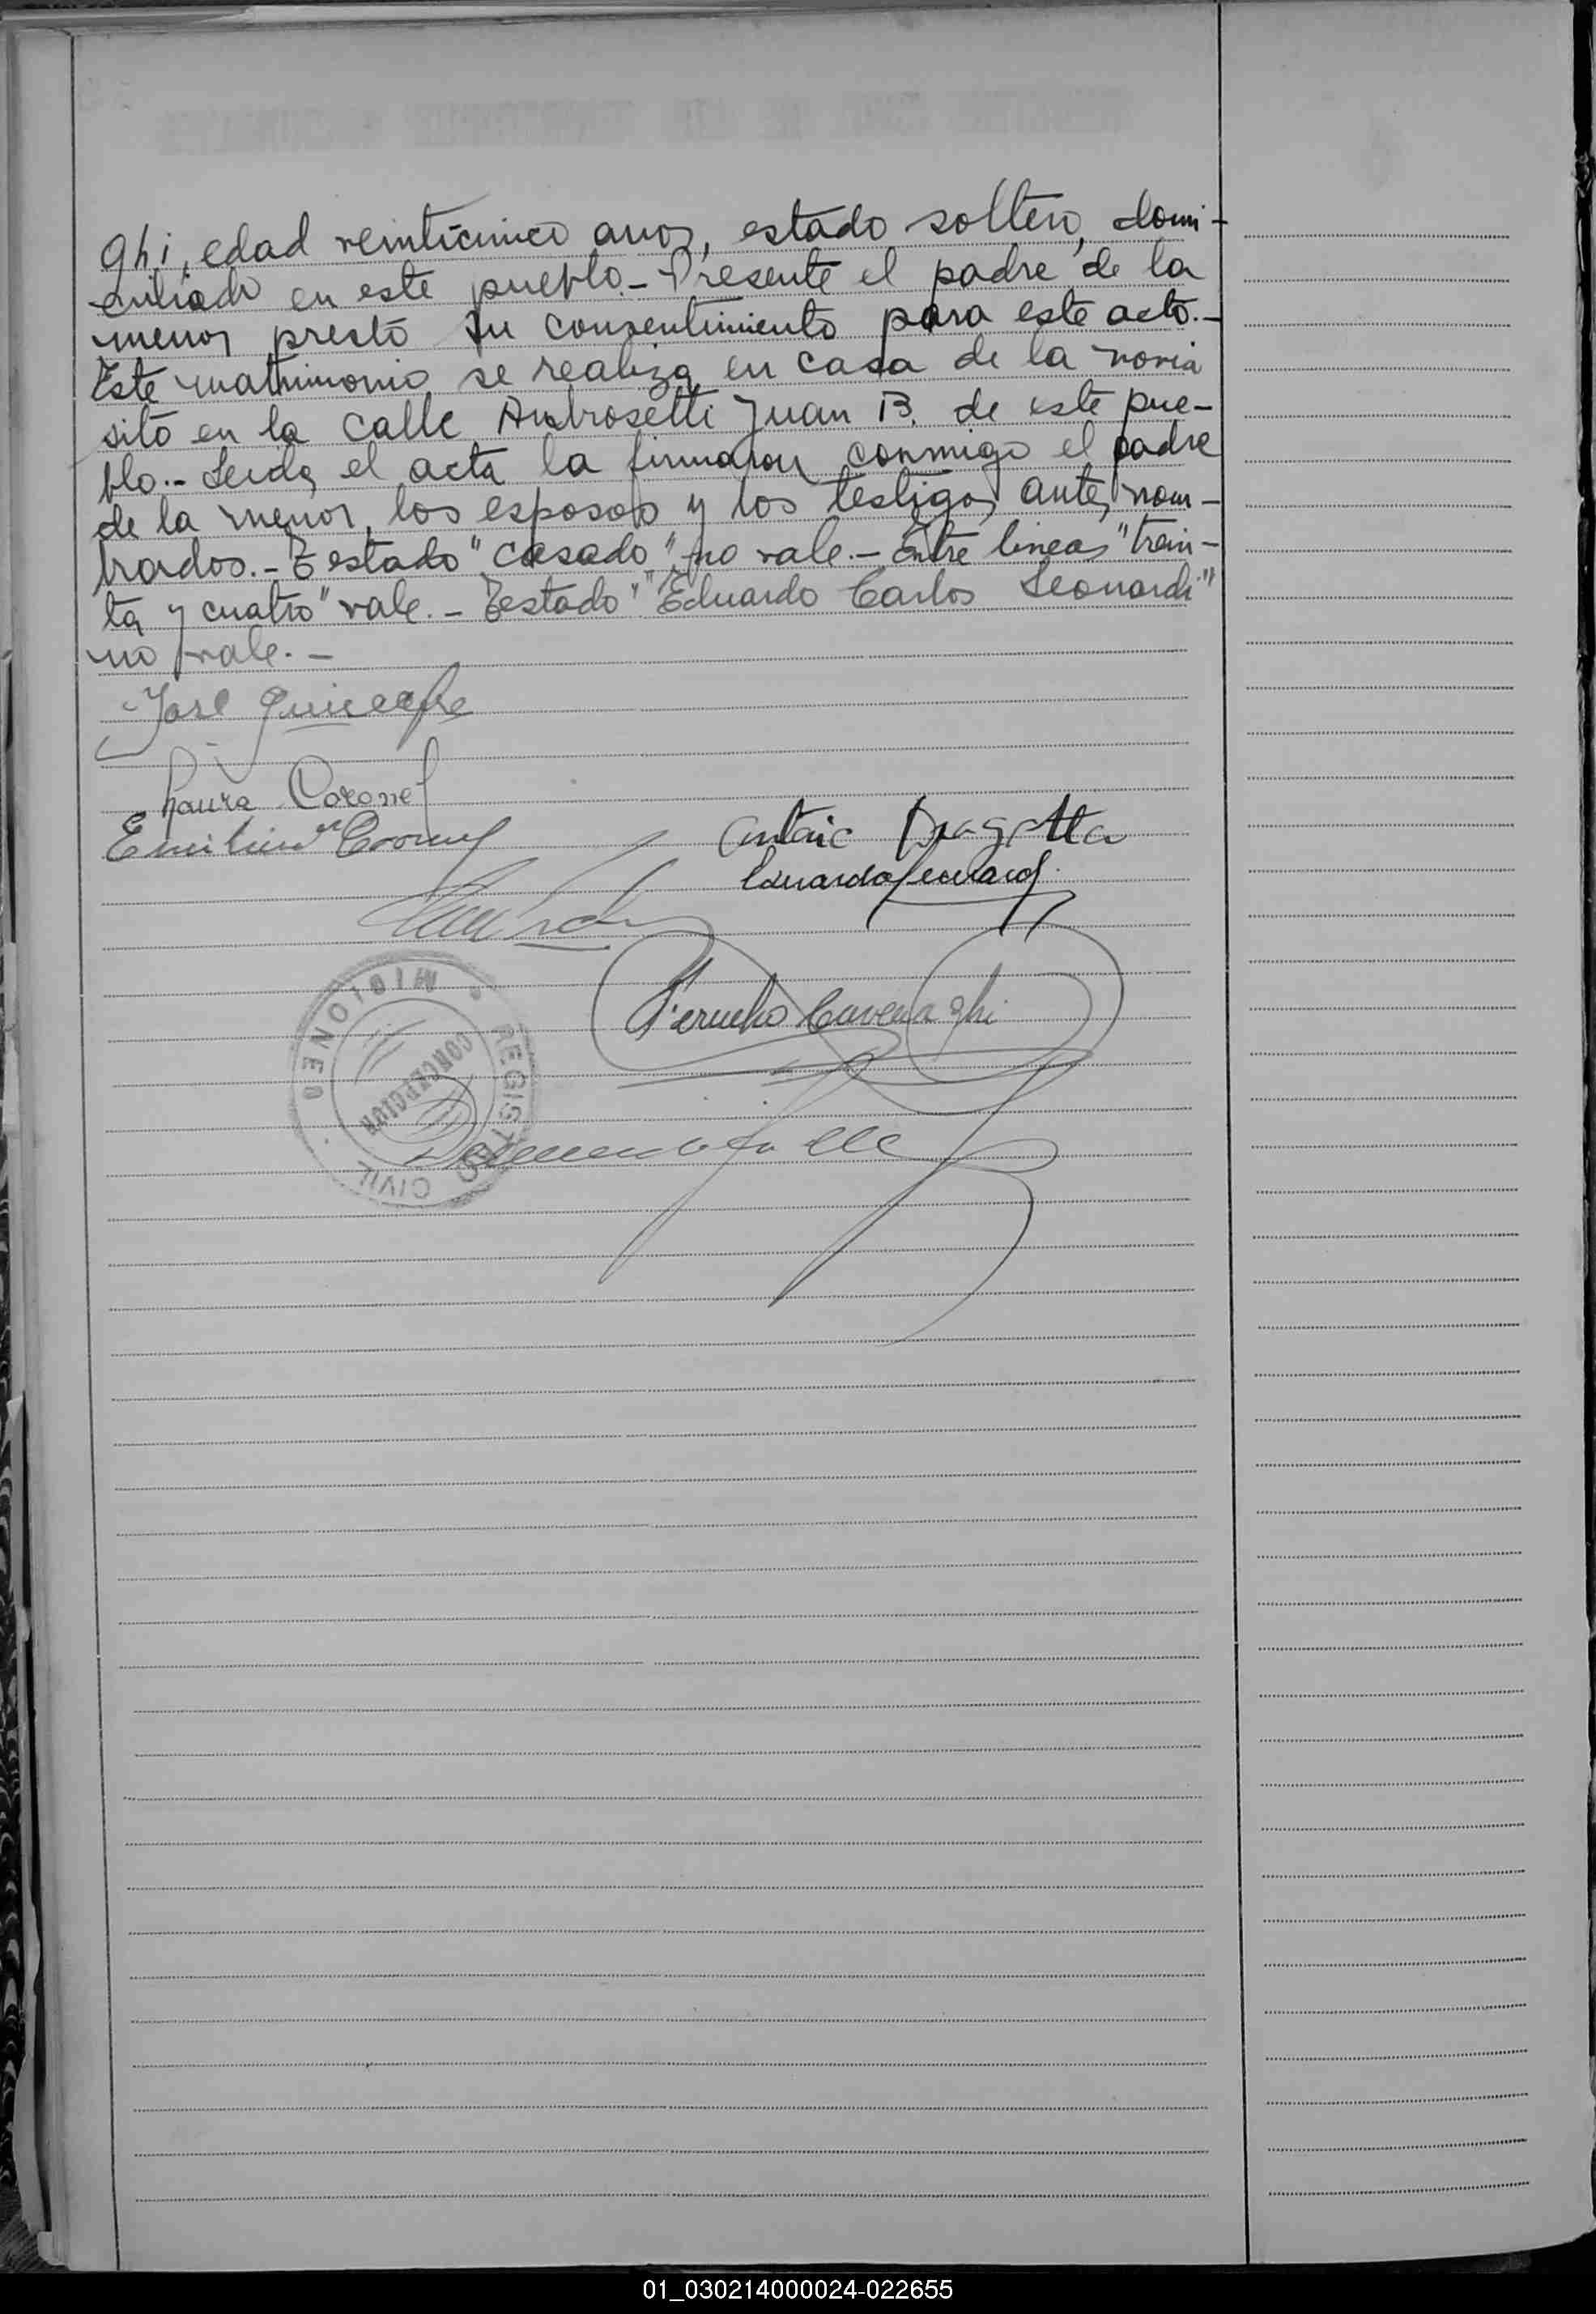 ghi, edad veinticinco años, estado soltero, domi-
ciliado en este pueblo.- Presente el padre de la
menor prestó su consentimiento para este acto.-
Este matrimonio se realiza en casa de la novia
sito en la calle Ambrosetti Juan B. de este pue-
blo.- Leida el acta la firmaron conmigo el padre
de la menor, los esposos y los testigos antes nom-
brados.- Testado "casado" no vale.- Entre lineas "trein-
ta y cuatro" vale.- Testado "Eduardo Carlos Leonardi"
no vale.-
José
Laura Coronel
Emiliano Antonio Dragotta
Eduardo Leonardi
Perucho Cavenaghi
REGISTRO CIVIL
MISIONES
CONCEPCION
01_030214000024-022655